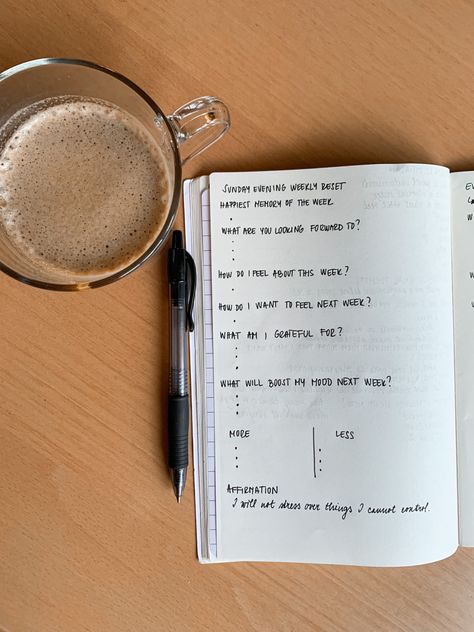 SUNDAY EVENING WEEKLY RESET
HAPPIEST MEMORY OF THE WEEK
WHAT ARE YOU LOOKING FORWARD TO?
HOW DO I FEEL ABOUT THIS WEEK?
HOW DO I WANT TO FEEL NEXT WEEK?
WHAT AM I GRATEFUL FOR?
WHAT WILL BOOST MY MOOD NEXT WEEK?
MORE LESS
AFFIRMATION
I will not stress over things I cannot control.